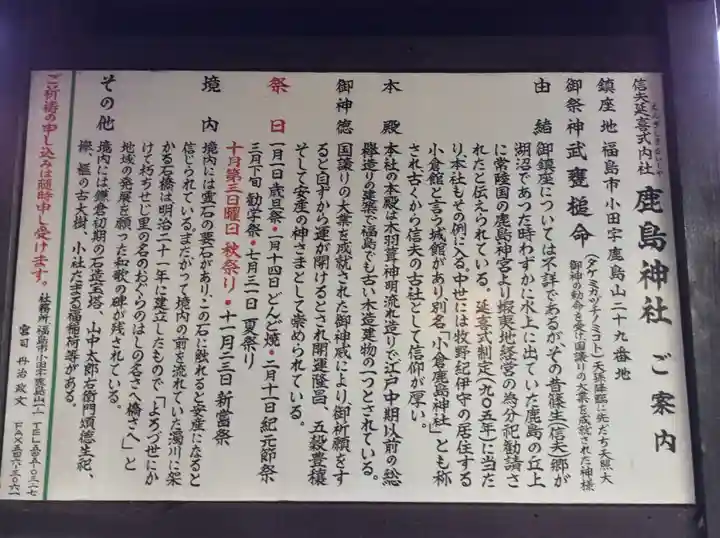 信夫延喜式内社 鹿島神社 ご案内
鎮座地 福島市小田字鹿島山二十九番地
御祭神 武甕槌命(タケミカヅチノミコト)天孫降臨に先だち天照大
御神の勅命を受け国譲りの大業を成就された神様
由緒 御鎮座については不詳であるがその昔篠生(信夫)郷が
湖沼であつた時わずかに水上に出ていた鹿島の丘上
に常陸国の鹿島神宮より蝦夷地経営の為分祀勧請さ
れたと伝えられている。延喜式制定(九〇五年)に当た
り、本社もその例に入る。中世には牧野紀伊守の居住する
小倉館と言う城館があり別名「小倉鹿島神社」とも称
され古くから信夫の古社として信仰が厚い。
本殿 本社の本殿は木羽葺神明流れ造りで江戸中期以前の総
欅造りの建築で福島でも古い木造建物の一つとされている。
御神徳 国譲りの大業を成就された御神威により、御祈願をす
ると自ずから運が開けるとされ開運隆昌、五穀豊穣
そして安産の神さまとして崇められている。
祭日 一月一日歳旦祭・一月十四日どんど焼・二月十日紀元節祭
三月下旬 勧学祭・七月三一日 夏祭り
十月第三日曜日 秋祭り・十一月二三日 新嘗祭
境内 境内には霊石の要石があり、この石に触れると安産になると
信じられている。またかつて境内の前を流れていた濁川に架
かる石橋は明治二十一年に建立したもので「よろづせにか
けて朽ちせじ里の名のおぐらのはしの名さへ橋さへ」と
地域の発展を願った和歌の碑が残されている。
その他 境内には鎌倉初期の石造宝塔、山中太郎右衛門頌徳生祀、
欅、樅の古大樹、小社たまる福稲荷等がある。
ご祈祷の申し込みは随時申し受けます。 社務所 福島市小田字鹿島山一一 TEL五四五-〇三二七
宮司 丹治政文 FAX五四六-三〇六一